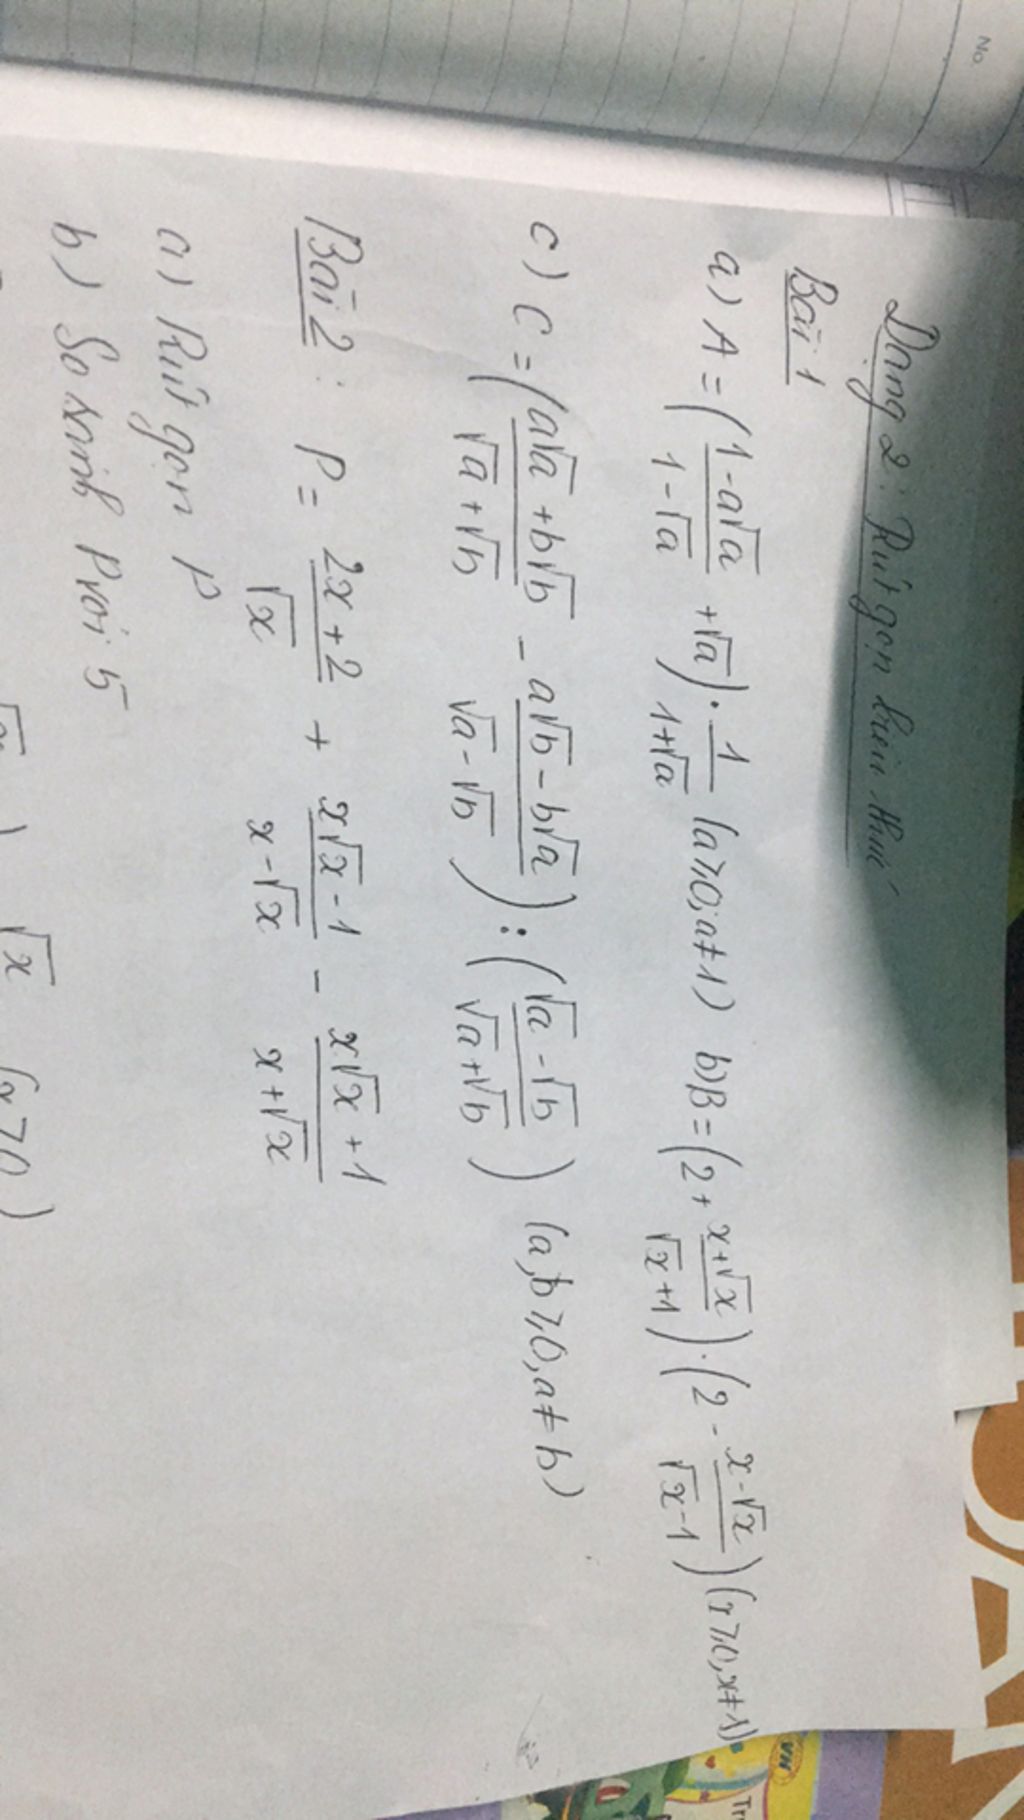 Dạng 2: Rút gọn biểu thức
Bài 1
a) A = (\frac{1-a√a}{1-√a} + √a) · \frac{1}{1+√a} (a≥0; a≠1) b) B = (2 + \frac{x+√x}{√x+1}) · (2 - \frac{x-√x}{√x-1}) (x≥0, x≠1)
c) C = (\frac{a√a + b√b}{√a+√b} - \frac{a√b - b√a}{√a-√b}) : (\frac{√a-√b}{√a+√b}) (a,b≥0, a≠b)
Bài 2: P = \frac{2x+2}{√x} + \frac{x√x-1}{x-√x} - \frac{x√x+1}{x+√x}
a) Rút gọn P
b) So sánh P với 5
√x
No.
VN